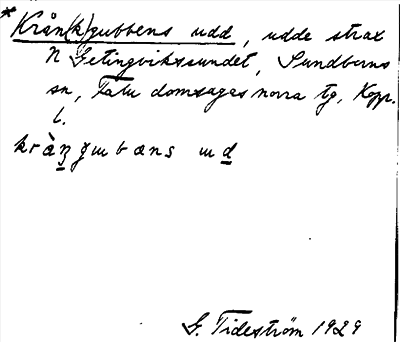 * Krån(k)gubbens udd, udde strax
N Getingvikssundet, Sundborns
sn, Falu domsagas norra tg, Kopp.
l.
G. Tideström 1929